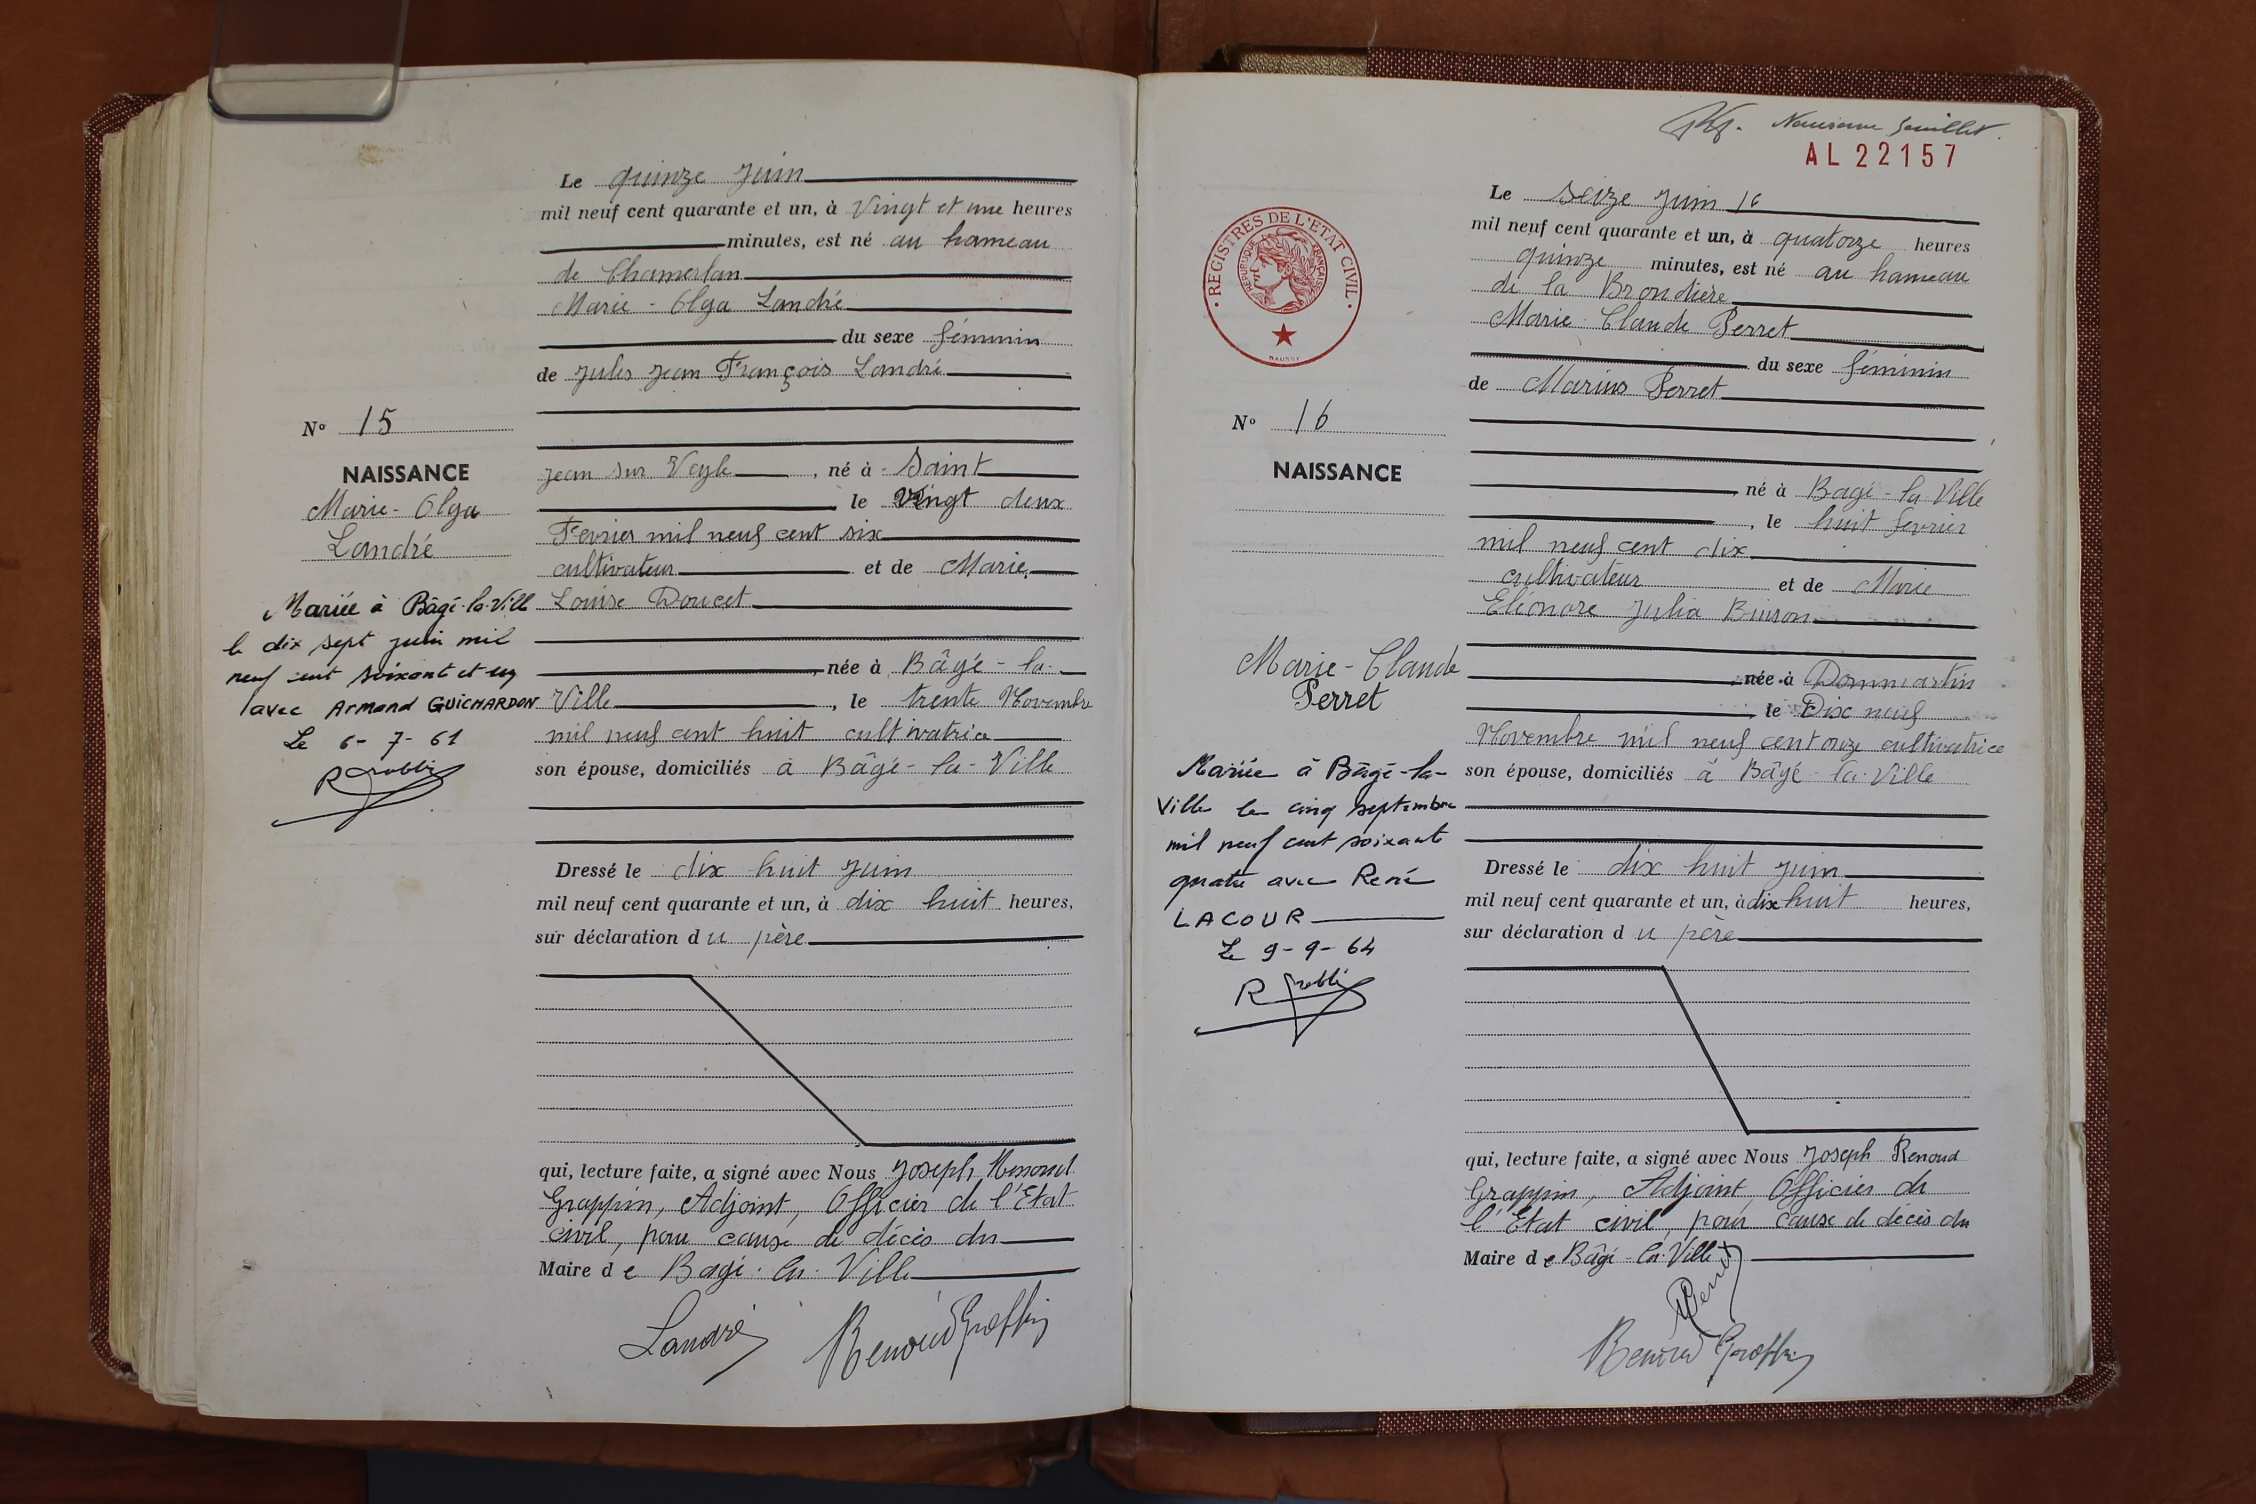 Le quinze Juin
mil neuf cent quarante et un, à Vingt et une heures
minutes, est né au hameau
de Chamerlan
Marie - Olga Landré
du sexe féminin
de Jules Jean François Landré
Jean sur Veyle, né à Saint
le Vingt deux
Fevrier mil neuf cent six
cultivateur et de Marie,
Louise Doucet
née à Bâgé-la-
Ville, le trente Novembre
mil neuf cent huit cultivatrice
son épouse, domiciliés à Bâgé-la-Ville
Dressé le dix huit Juin
mil neuf cent quarante et un, à dix huit heures,
sur déclaration du père
qui, lecture faite, a signé avec Nous Joseph Renoud
Grappin, Adjoint, Officier de l'Etat
civil, pour cause de décès du
Maire de Bagé-la-Ville
Landré Renoud Grappin
No 15
NAISSANCE
Marie-Olga
Landré
Mariée à Bâgé-la-Ville
le dix sept juin mil
neuf cent soixante et un
avec Armand GUICHARDON
Le 6-7-61
Neuvième feuillet.
AL 22157
REGISTRES DE L'ETAT CIVIL
REPUBLIQUE FRANÇAISE
Le Seize Juin 16
mil neuf cent quarante et un, à quatorze heures
quinze minutes, est né au hameau
de la Brondière
Marie Claude Perret
du sexe féminin
de Marius Perret
né à Bagé-la Ville
, le huit fevrier
mil neuf cent dix
cultivateur et de Marie
Eléonore Julia Buison
née à Dommartin
le Dix neuf
Novembre mil neuf cent onze cultivatrice
son épouse, domiciliés à Bâgé-la-Ville
Dressé le dix huit Juin
mil neuf cent quarante et un, à dix huit heures,
sur déclaration du père
qui, lecture faite, a signé avec Nous Joseph Renoud
Grappin, Adjoint, Officier de
l'Etat civil, pour cause de décès du
Maire de Bâgé-la-Ville
Perret
Renoud Grappin
No 16
NAISSANCE
Marie-Claude
Perret
Mariée à Bâgé-la-
Ville le cinq septembre
mil neuf cent soixante
quatre avec René
LACOUR
Le 9-9-64